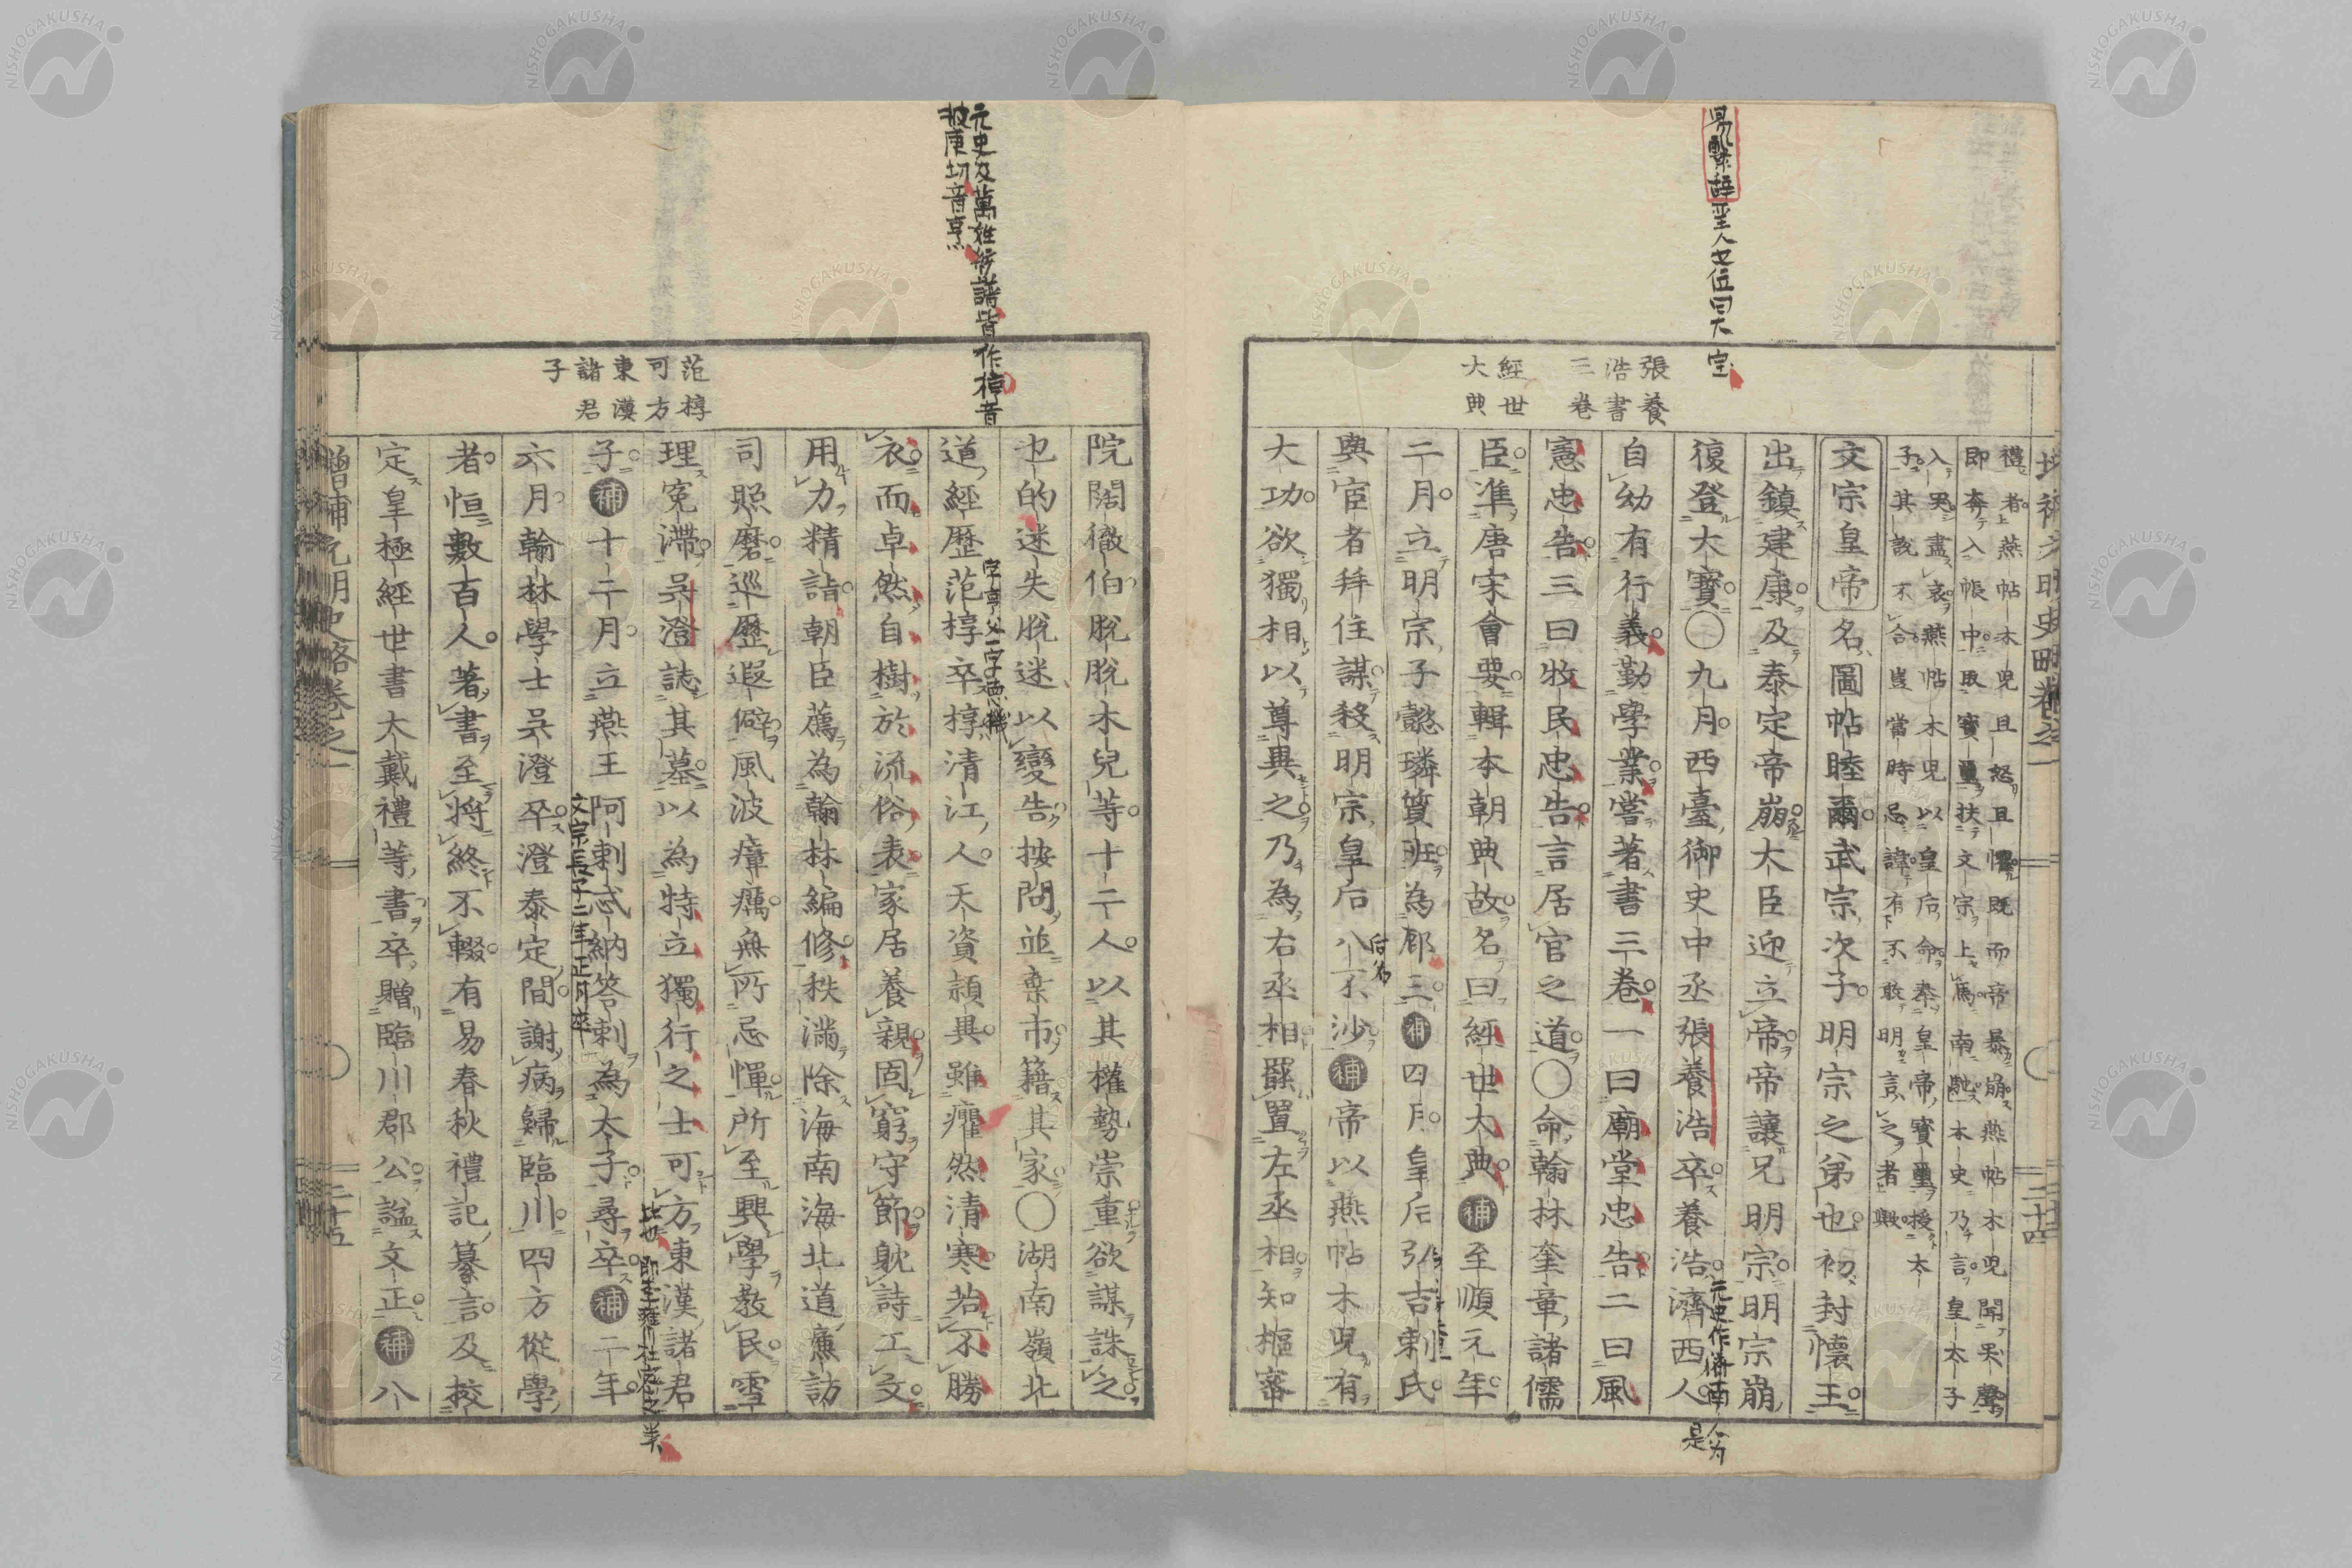 易繫辭聖人之大宝
張養
浩書
三卷
經世
大典
禮者燕帖木兒且怒且懼既而帝暴崩燕帖木兒聞哭聲
即奔入帳中取寶璽扶文宗上馬南馳木史乃言皇太子
入哭盡哀燕帖木兒以皇后命奉皇帝寶璽授太
子其説不合豈當時忌諱有不敢明言之者歟
文宗皇帝名圖帖睦爾武宗次子明宗之弟也初封懷王
出鎮建康及泰定帝崩大臣迎立帝帝讓兄明宗明宗崩
復登大寶〇九月西臺御史中丞張養浩卒養浩濟西人
元史作濟南人为是
自幼有行義勤學業嘗著書三卷一曰廟堂忠告二曰風
憲忠告三曰牧民忠告言居官之道〇命翰林奎章諸儒
臣準唐宋會要輯本朝典故名曰經世大典補至順元年
二月立明宗子懿璘質班為鄜三補四月皇后弘吉剌氏
與宦者拜住謀殺明宗皇后八不沙補帝以燕帖木兒有
后名
大功欲獨相以尊異之乃為右丞相罷置左丞相知樞密
元史及萬姓統譜皆作梈音
披庚切音烹
范梈
可方
東漢
諸君
子
院闊徹伯脫脫木兒等十二人以其權勢崇重欲謀誅之
也的迷失脫迷以變告按問並棄市籍其家〇湖南嶺北
道經歷范梈卒梈清江人天資穎異雖癯然清寒若不勝
字亨父一字德機
衣而卓然自樹於流俗表家居養親固窮守節躭詩工文
用力精詣朝臣薦為翰林編修秩滿除海南海北道廉訪
司照磨巡歷遐僻風波瘴癘無所忌憚所至興學教民雪
理冤滯吳澄誌其墓以為特立獨行之士可方東漢諸君
子補十二月立燕王阿剌忒納答剌為太子尋卒補二年
文宗長子二年正月卒
六月翰林學士吳澄卒澄泰定間謝病歸臨川四方從學
者恒數百人著書至將終不輟有易春秋禮記纂言及挍
定皇極經世書大戴禮等書卒贈臨川郡公諡文正補八
增補元明史略卷之一
二十五